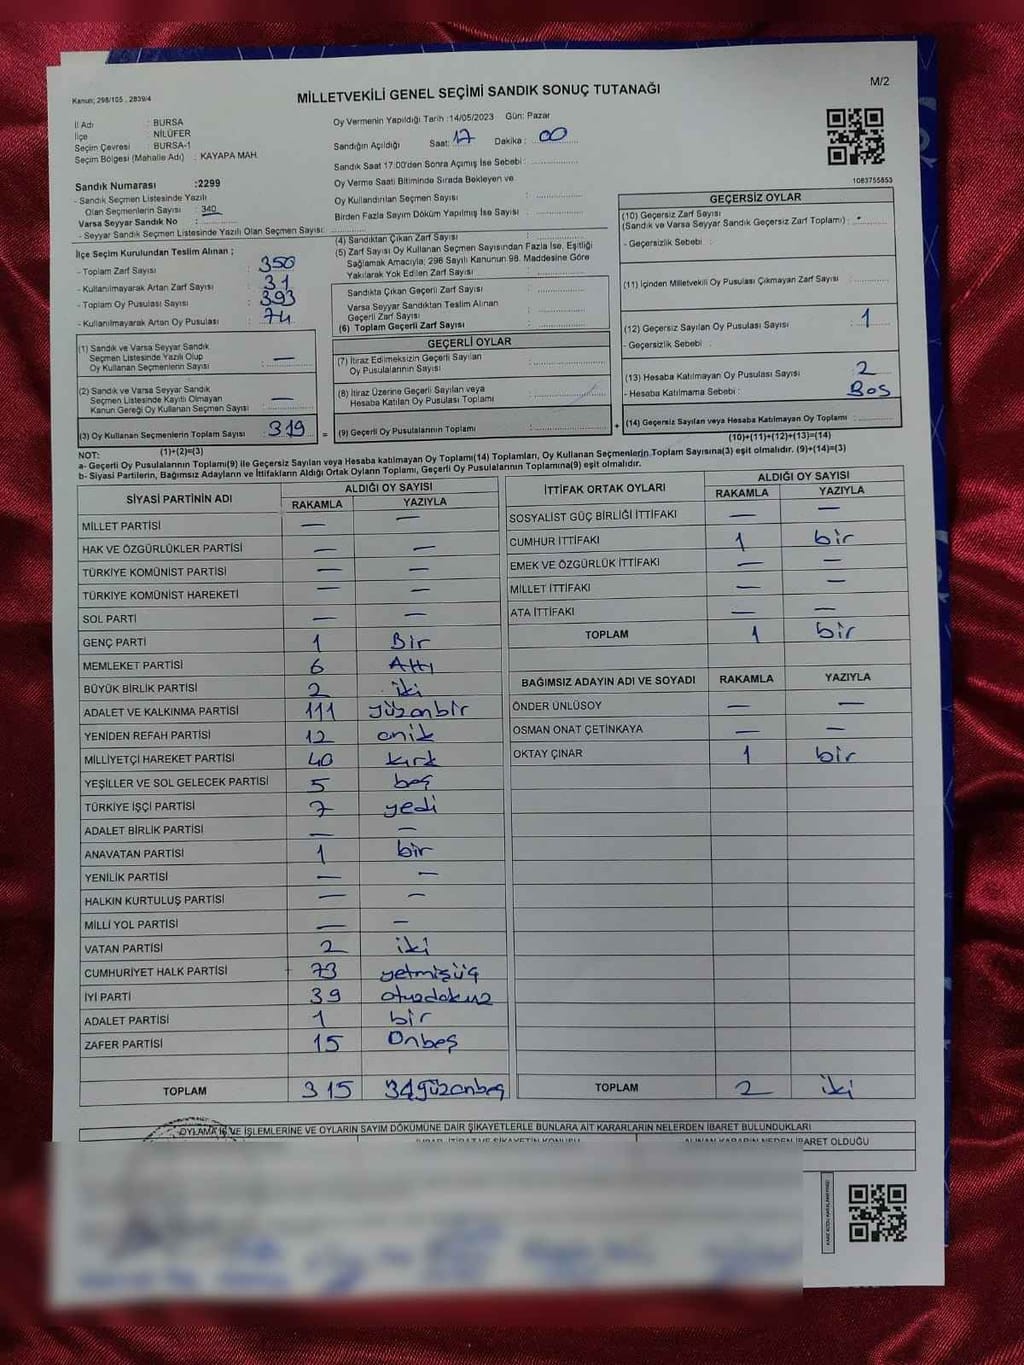 Kanun; 298/105 , 2839/4
MİLLETVEKİLİ GENEL SEÇİMİ SANDIK SONUÇ TUTANAĞI
M/2
İl Adı : BURSA
İlçe : NİLÜFER
Seçim Çevresi : BURSA-1
Seçim Bölgesi (Mahalle Adı) : KAYAPA MAH.
Oy Vermenin Yapıldığı Tarih :14/05/2023 Gün: Pazar
Sandığın Açıldığı Saat: 17 Dakika : 00
Sandık Saat 17:00'den Sonra Açımış İse Sebebi :
Oy Verme Saati Bitiminde Sırada Bekleyen ve
Oy Kullandırılan Seçmen Sayısı :
Birden Fazla Sayım Döküm Yapılmış İse Sayısı :
1083755853
Sandık Numarası :2299
- Sandık Seçmen Listesinde Yazılı
Olan Seçmenlerin Sayısı : 340
Varsa Seyyar Sandık No :
- Seyyar Sandık Seçmen Listesinde Yazılı Olan Seçmen Sayısı:
İlçe Seçim Kurulundan Teslim Alınan ;
- Toplam Zarf Sayısı : 350
- Kullanılmayarak Artan Zarf Sayısı : 31
- Toplam Oy Pusulası Sayısı : 393
- Kullanılmayarak Artan Oy Pusulası : 74
(1) Sandık ve Varsa Seyyar Sandık
Seçmen Listesinde Yazılı Olup
Oy Kullanan Seçmenlerin Sayısı : —
(2) Sandık ve Varsa Seyyar Sandık
Seçmen Listesinde Kayıtlı Olmayan
Kanun Gereği Oy Kullanan Seçmen Sayısı : —
(3) Oy Kullanan Seçmenlerin Toplam Sayısı : 319
(1)+(2)=(3)
(4) Sandıktan Çıkan Zarf Sayısı :
(5) Zarf Sayısı Oy Kullanan Seçmen Sayısından Fazla İse, Eşitliği
Sağlamak Amacıyla; 298 Sayılı Kanunun 98. Maddesine Göre
Yakılarak Yok Edilen Zarf Sayısı :
Sandıkta Çıkan Geçerli Zarf Sayısı :
Varsa Seyyar Sandıktan Teslim Alınan
Geçerli Zarf Sayısı :
(6) Toplam Geçerli Zarf Sayısı :
GEÇERLİ OYLAR
(7) İtiraz Edilmeksizin Geçerli Sayılan
Oy Pusulalarının Sayısı :
(8) İtiraz Üzerine Geçerli Sayılan veya
Hesaba Katılan Oy Pusulası Toplamı :
= (9) Geçerli Oy Pusulalarının Toplamı : +
GEÇERSİZ OYLAR
(10) Geçersiz Zarf Sayısı
(Sandık ve Varsa Seyyar Sandık Geçersiz Zarf Toplamı) :
- Geçersizlik Sebebi :
(11) İçinden Milletvekili Oy Pusulası Çıkmayan Zarf Sayısı :
(12) Geçersiz Sayılan Oy Pusulası Sayısı : 1
- Geçersizlik Sebebi :
(13) Hesaba Katılmayan Oy Pusulası Sayısı : 2
- Hesaba Katılmama Sebebi : Bos
(14) Geçersiz Sayılan veya Hesaba Katılmayan Oy Toplamı :
(10)+(11)+(12)+(13)=(14)
NOT:
a- Geçerli Oy Pusulalarının Toplamı(9) ile Geçersiz Sayılan veya Hesaba katılmayan Oy Toplamı(14) Toplamları, Oy Kullanan Seçmenlerin Toplam Sayısına(3) eşit olmalıdır. (9)+(14)=(3)
b- Siyasi Partilerin, Bağımsız Adayların ve İttifakların Aldığı Ortak Oyların Toplamı, Geçerli Oy Pusulalarının Toplamına(9) eşit olmalıdır.
SİYASİ PARTİNİN ADI ALDIĞI OY SAYISI
RAKAMLA YAZIYLA
MİLLET PARTİSİ — —
HAK VE ÖZGÜRLÜKLER PARTİSİ — —
TÜRKİYE KOMÜNİST PARTİSİ — —
TÜRKİYE KOMÜNİST HAREKETİ — —
SOL PARTİ — —
GENÇ PARTİ 1 Bir
MEMLEKET PARTİSİ 6 Altı
BÜYÜK BİRLİK PARTİSİ 2 iki
ADALET VE KALKINMA PARTİSİ 111 yüzonbir
YENİDEN REFAH PARTİSİ 12 onik
MİLLİYETÇİ HAREKET PARTİSİ 40 kırk
YEŞİLLER VE SOL GELECEK PARTİSİ 5 beş
TÜRKİYE İŞÇİ PARTİSİ 7 yedi
ADALET BİRLİK PARTİSİ — —
ANAVATAN PARTİSİ 1 bir
YENİLİK PARTİSİ — —
HALKIN KURTULUŞ PARTİSİ — —
MİLLİ YOL PARTİSİ — —
VATAN PARTİSİ 2 iki
CUMHURİYET HALK PARTİSİ 73 yetmişüç
İYİ PARTİ 39 otuzdokuz
ADALET PARTİSİ 1 bir
ZAFER PARTİSİ 15 Onbeş
TOPLAM 315 3üçyüzonbeş
İTTİFAK ORTAK OYLARI ALDIĞI OY SAYISI
RAKAMLA YAZIYLA
SOSYALİST GÜÇ BİRLİĞİ İTTİFAKI — —
CUMHUR İTTİFAKI 1 bir
EMEK VE ÖZGÜRLÜK İTTİFAKI — —
MİLLET İTTİFAKI — —
ATA İTTİFAKI — —
TOPLAM 1 bir
BAĞIMSIZ ADAYIN ADI VE SOYADI RAKAMLA YAZIYLA
ÖNDER ÜNLÜSOY — —
OSMAN ONAT ÇETİNKAYA — —
OKTAY ÇINAR 1 bir
TOPLAM 2 iki
OYLAMA İŞ VE İŞLEMLERİNE VE OYLARIN SAYIM DÖKÜMÜNE DAİR ŞİKAYETLERLE BUNLARA AİT KARARLARIN NELERDEN İBARET BULUNDUKLARI